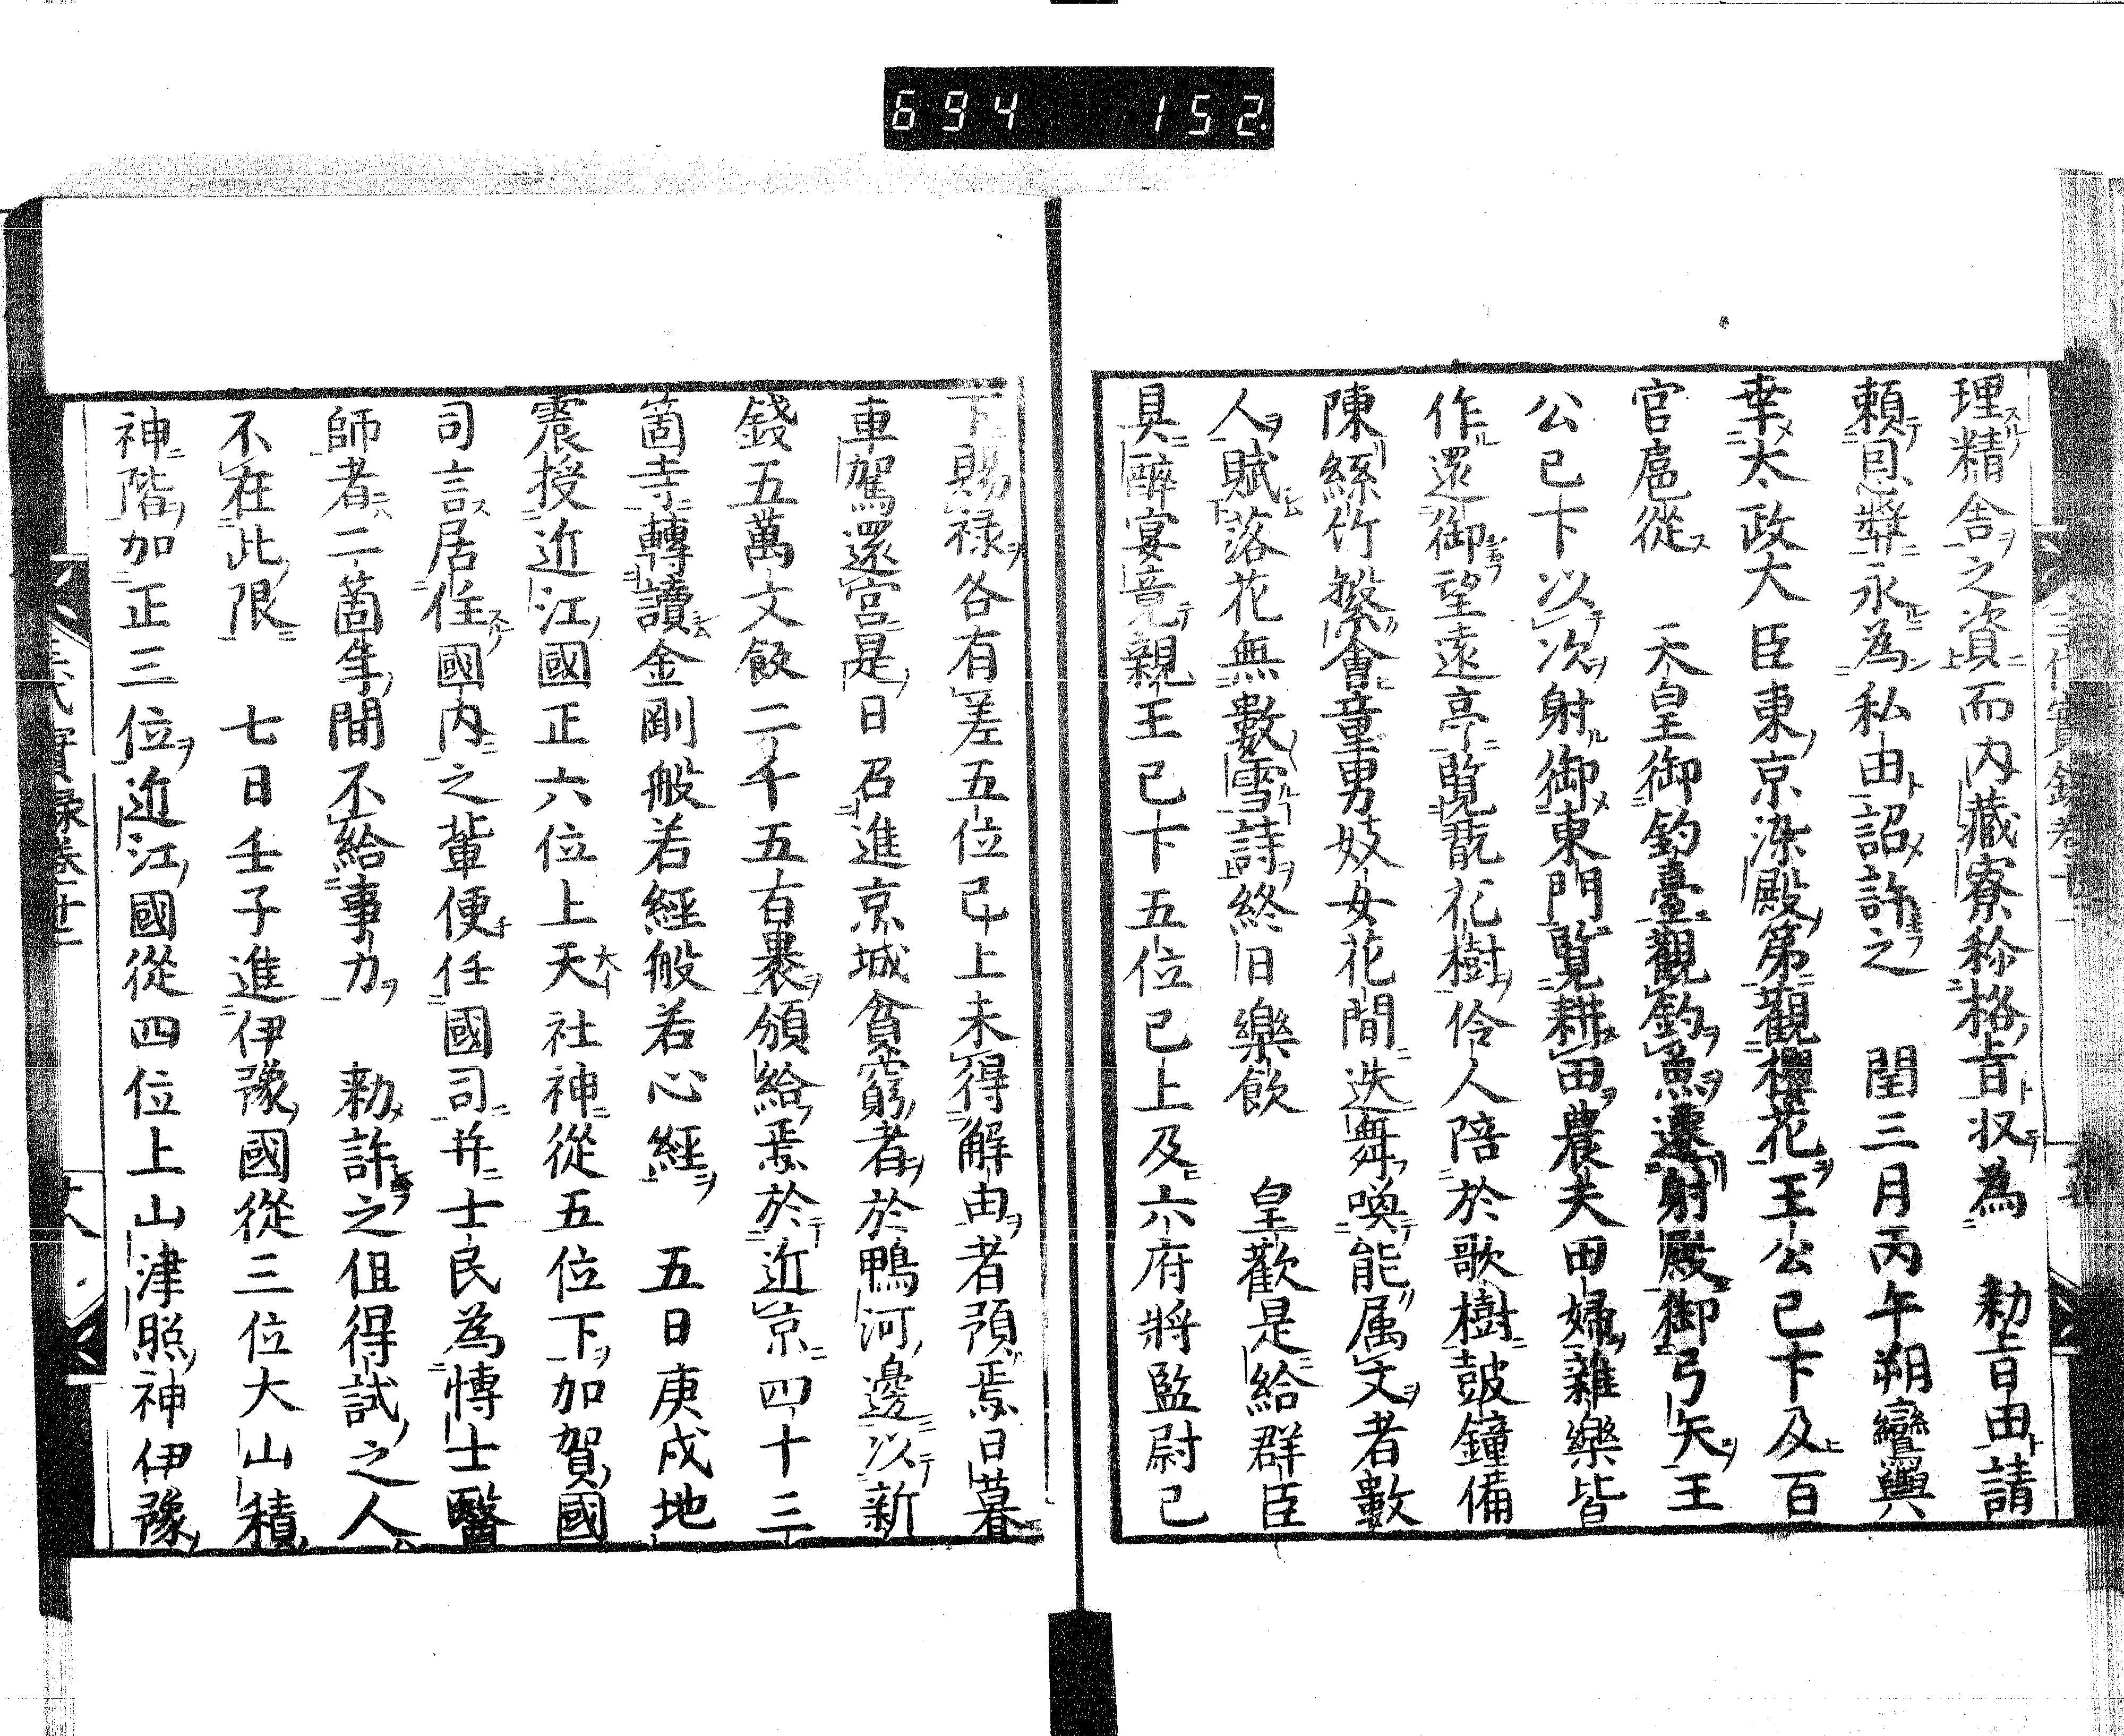 694 152
理精舎之資而内藏寮称格旨収為 勅旨田請
頼恩奨永為私由詔許之 閏三月丙午朔鸞輿
幸太政大臣東京染殿第觀櫻花王公已下及百
官扈從 天皇御釣臺觀釣魚還射殿御弓矢王
公已下以次射御東門覧耕田農夫田婦雜樂皆
作還御望遠亭覧翫花樹伶人陪於歌樹鼓鐘備
陳絲竹繁會童男妓女花間迭舞喚能属文者數
人賦落花無數雪詩終日樂飲 皇歡是給群臣
具醉宴竟親王已下五位已上及六府將監尉已
下賜禄各有差五位已上未得解由者預焉日暮
車駕還宮是日召進京城貧窮者於鴨河邊以新
錢五萬文飯二千五百裹頒給焉於近京四十三
箇寺轉讀金剛般若經般若心經 五日庚戌地
震授近江國正六位上天社神從五位下加賀國
司言居住國内之輩便任國司并士民為博士醫
師者二箇年間不給事力 勅許之但得試之人
不在此限 七日壬子進伊豫國從三位大山積
神階加正三位近江國從四位上山津照神伊豫
三代實録卷十二
十八